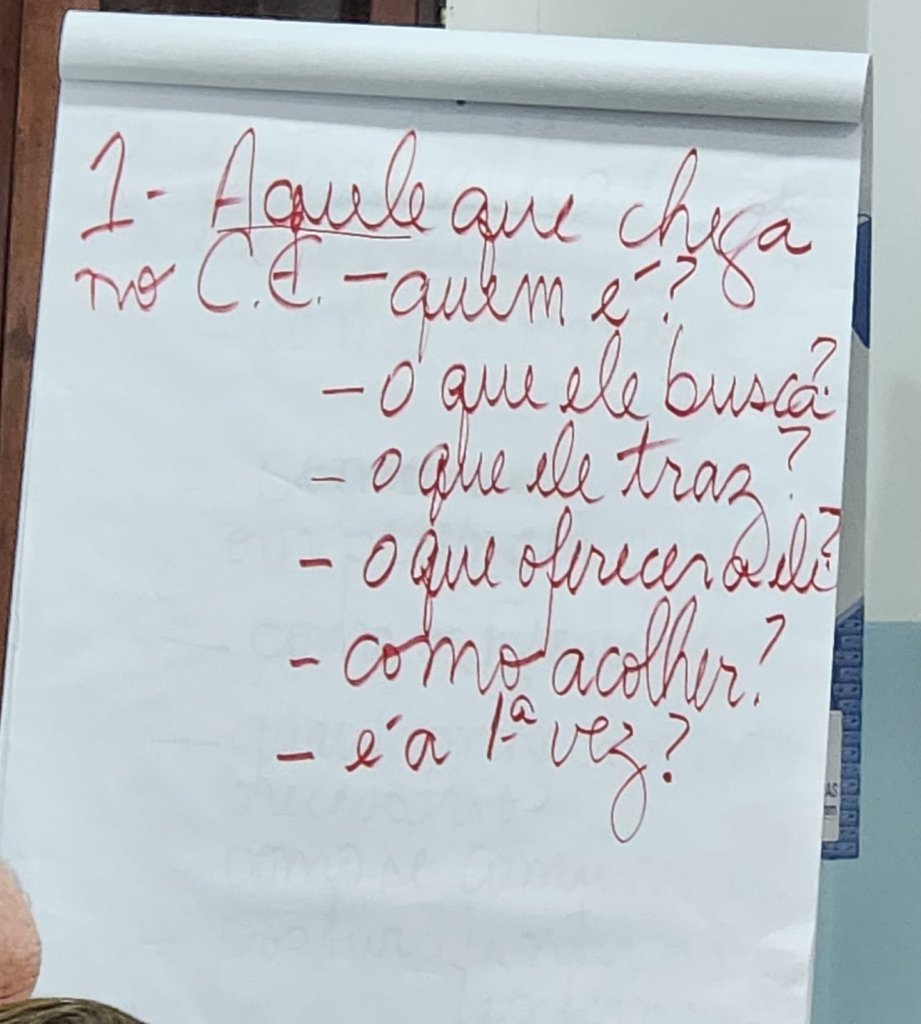 1- Aquele que chega
no C.E. - quem é?
- o que ele busca?
- o que ele traz?
- o que oferecer a ele?
- como acolher?
- é a 1ª vez?